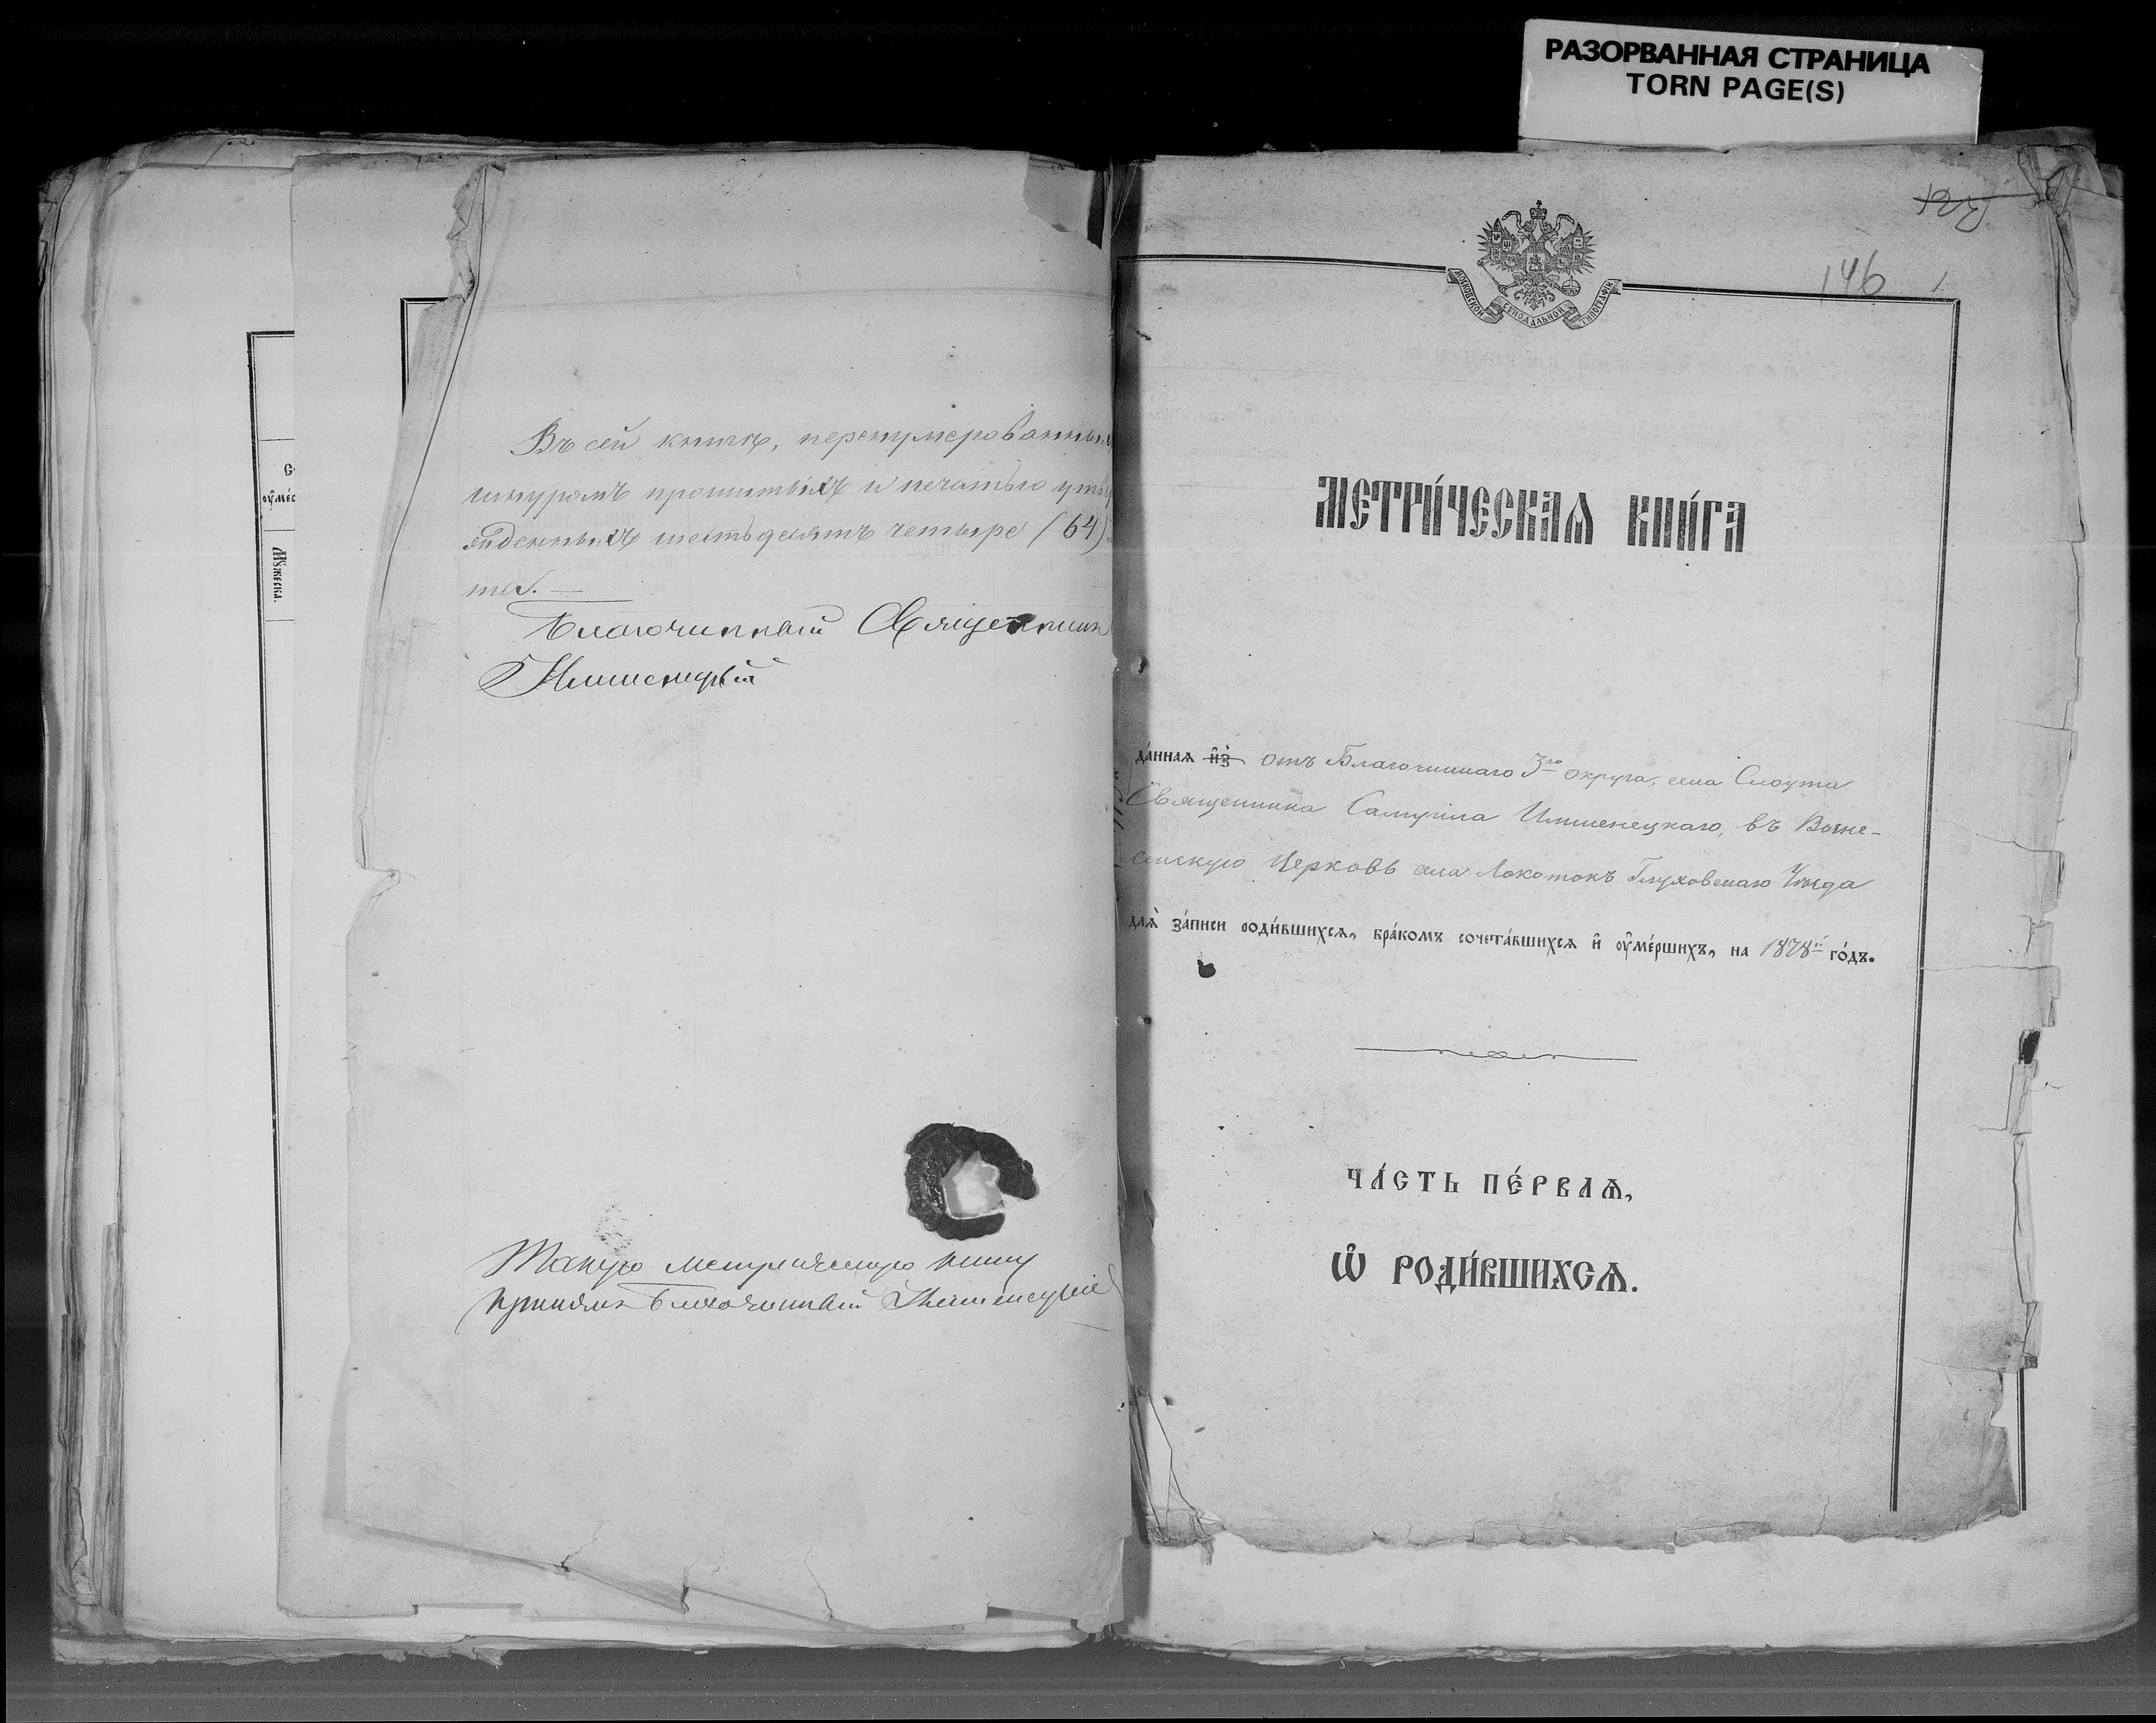 РАЗОРВАННАЯ СТРАНИЦА
TORN PAGE(S)
Въ сей книгѣ, перенумерованныхъ
шнуромъ прошитыхъ и печатью утвер
жденныхъ шестьдесятъ четыре (64)
та. —
Благочинный Священник
Имшенецкій
Такую метрическую книгу
принялъ Благочинный Имшенецкій
Мѹжеска.
146 1.
МОСКОВСКОЙ СѴНОДАЛЬНОЙ ТИПОГРАФІИ
МЕТРИ́ЧЕСКАѦ КНИ́ГА
да́ннаѧ и҆з̾ отъ Благочиннаго 3го округа, села Слоута
Священника Самуила Имшенецкаго, въ Возне-
сенскую Церковь села Локотокъ Глуховскаго Уѣзда
длѧ̀ за́писи роди́вшихсѧ, бра́комъ сочета́вшихсѧ и҆ ѹ҆ме́ршихъ, на 1878й го́дъ.
ЧА́СТЬ ПЕ́РВАѦ,
Ѽ РОДИ́ВШИХСѦ.